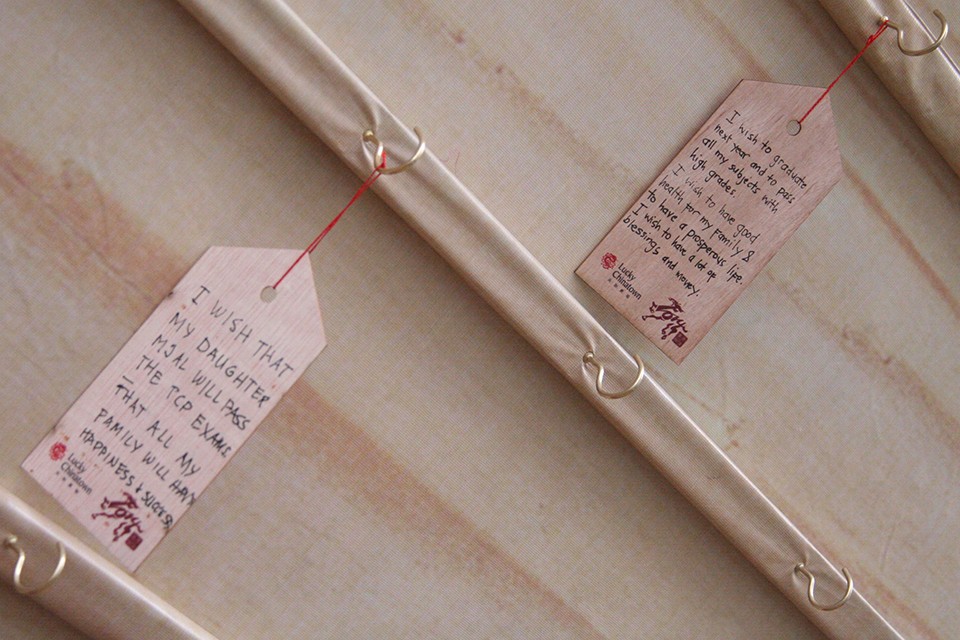 I WISH THAT
MY DAUGHTER
MJ AL WILL PASS
THE TCP EXAMS
THAT ALL MY
FAMILY WILL HAVE
HAPPINESS & SUCCESS
Lucky
Chinatown
I wish to graduate
next year and to pass
all my subjects with
high grades.
I wish to have good
health for my family &
to have a prosperous life.
I wish to have a lot of
blessings and money.
Lucky
Chinatown